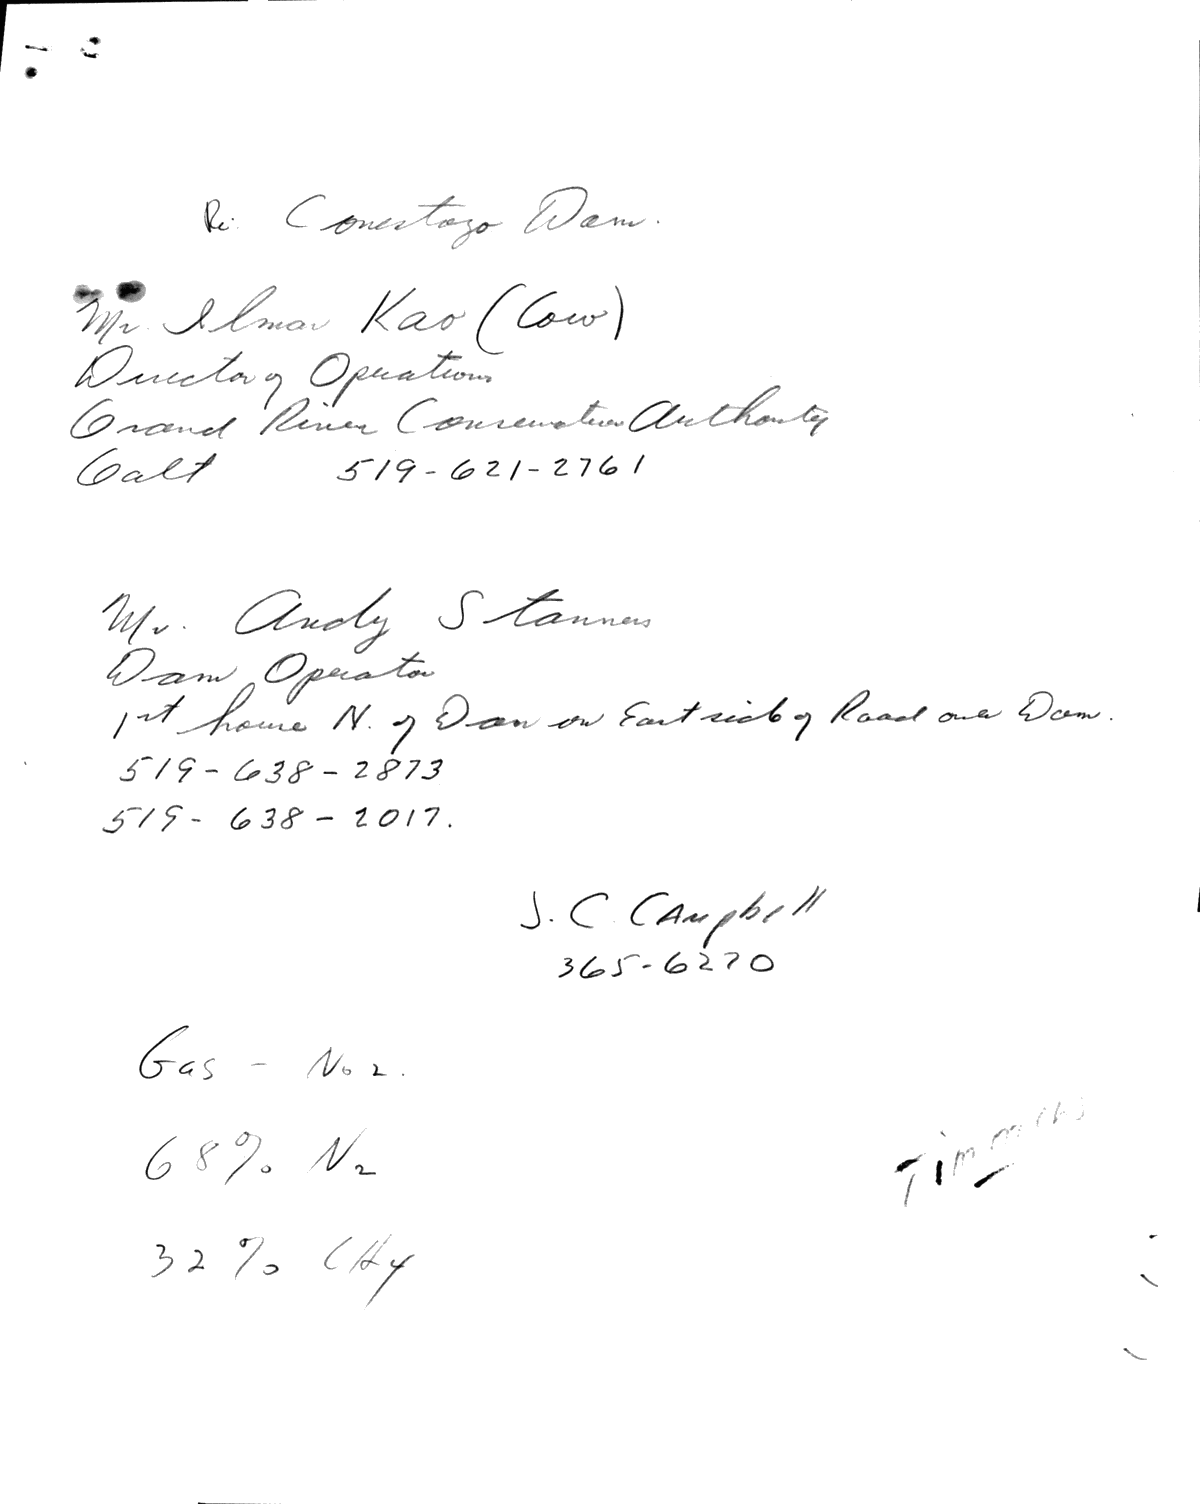 Re: Conestogo Dam.
Mr. Ilmar Kao (Cow)
Director of Operations
Grand River Conservation Authority
Galt 519-621-2761
Mr. Andy Stanners
Dam Operator
1st house N. of Dam on East side of Road over Dam.
519-638-2873
519-638-2017.
J. C. Campbell
365-6270
Gas - No 2.
68% N2
32% CH4
Timmins